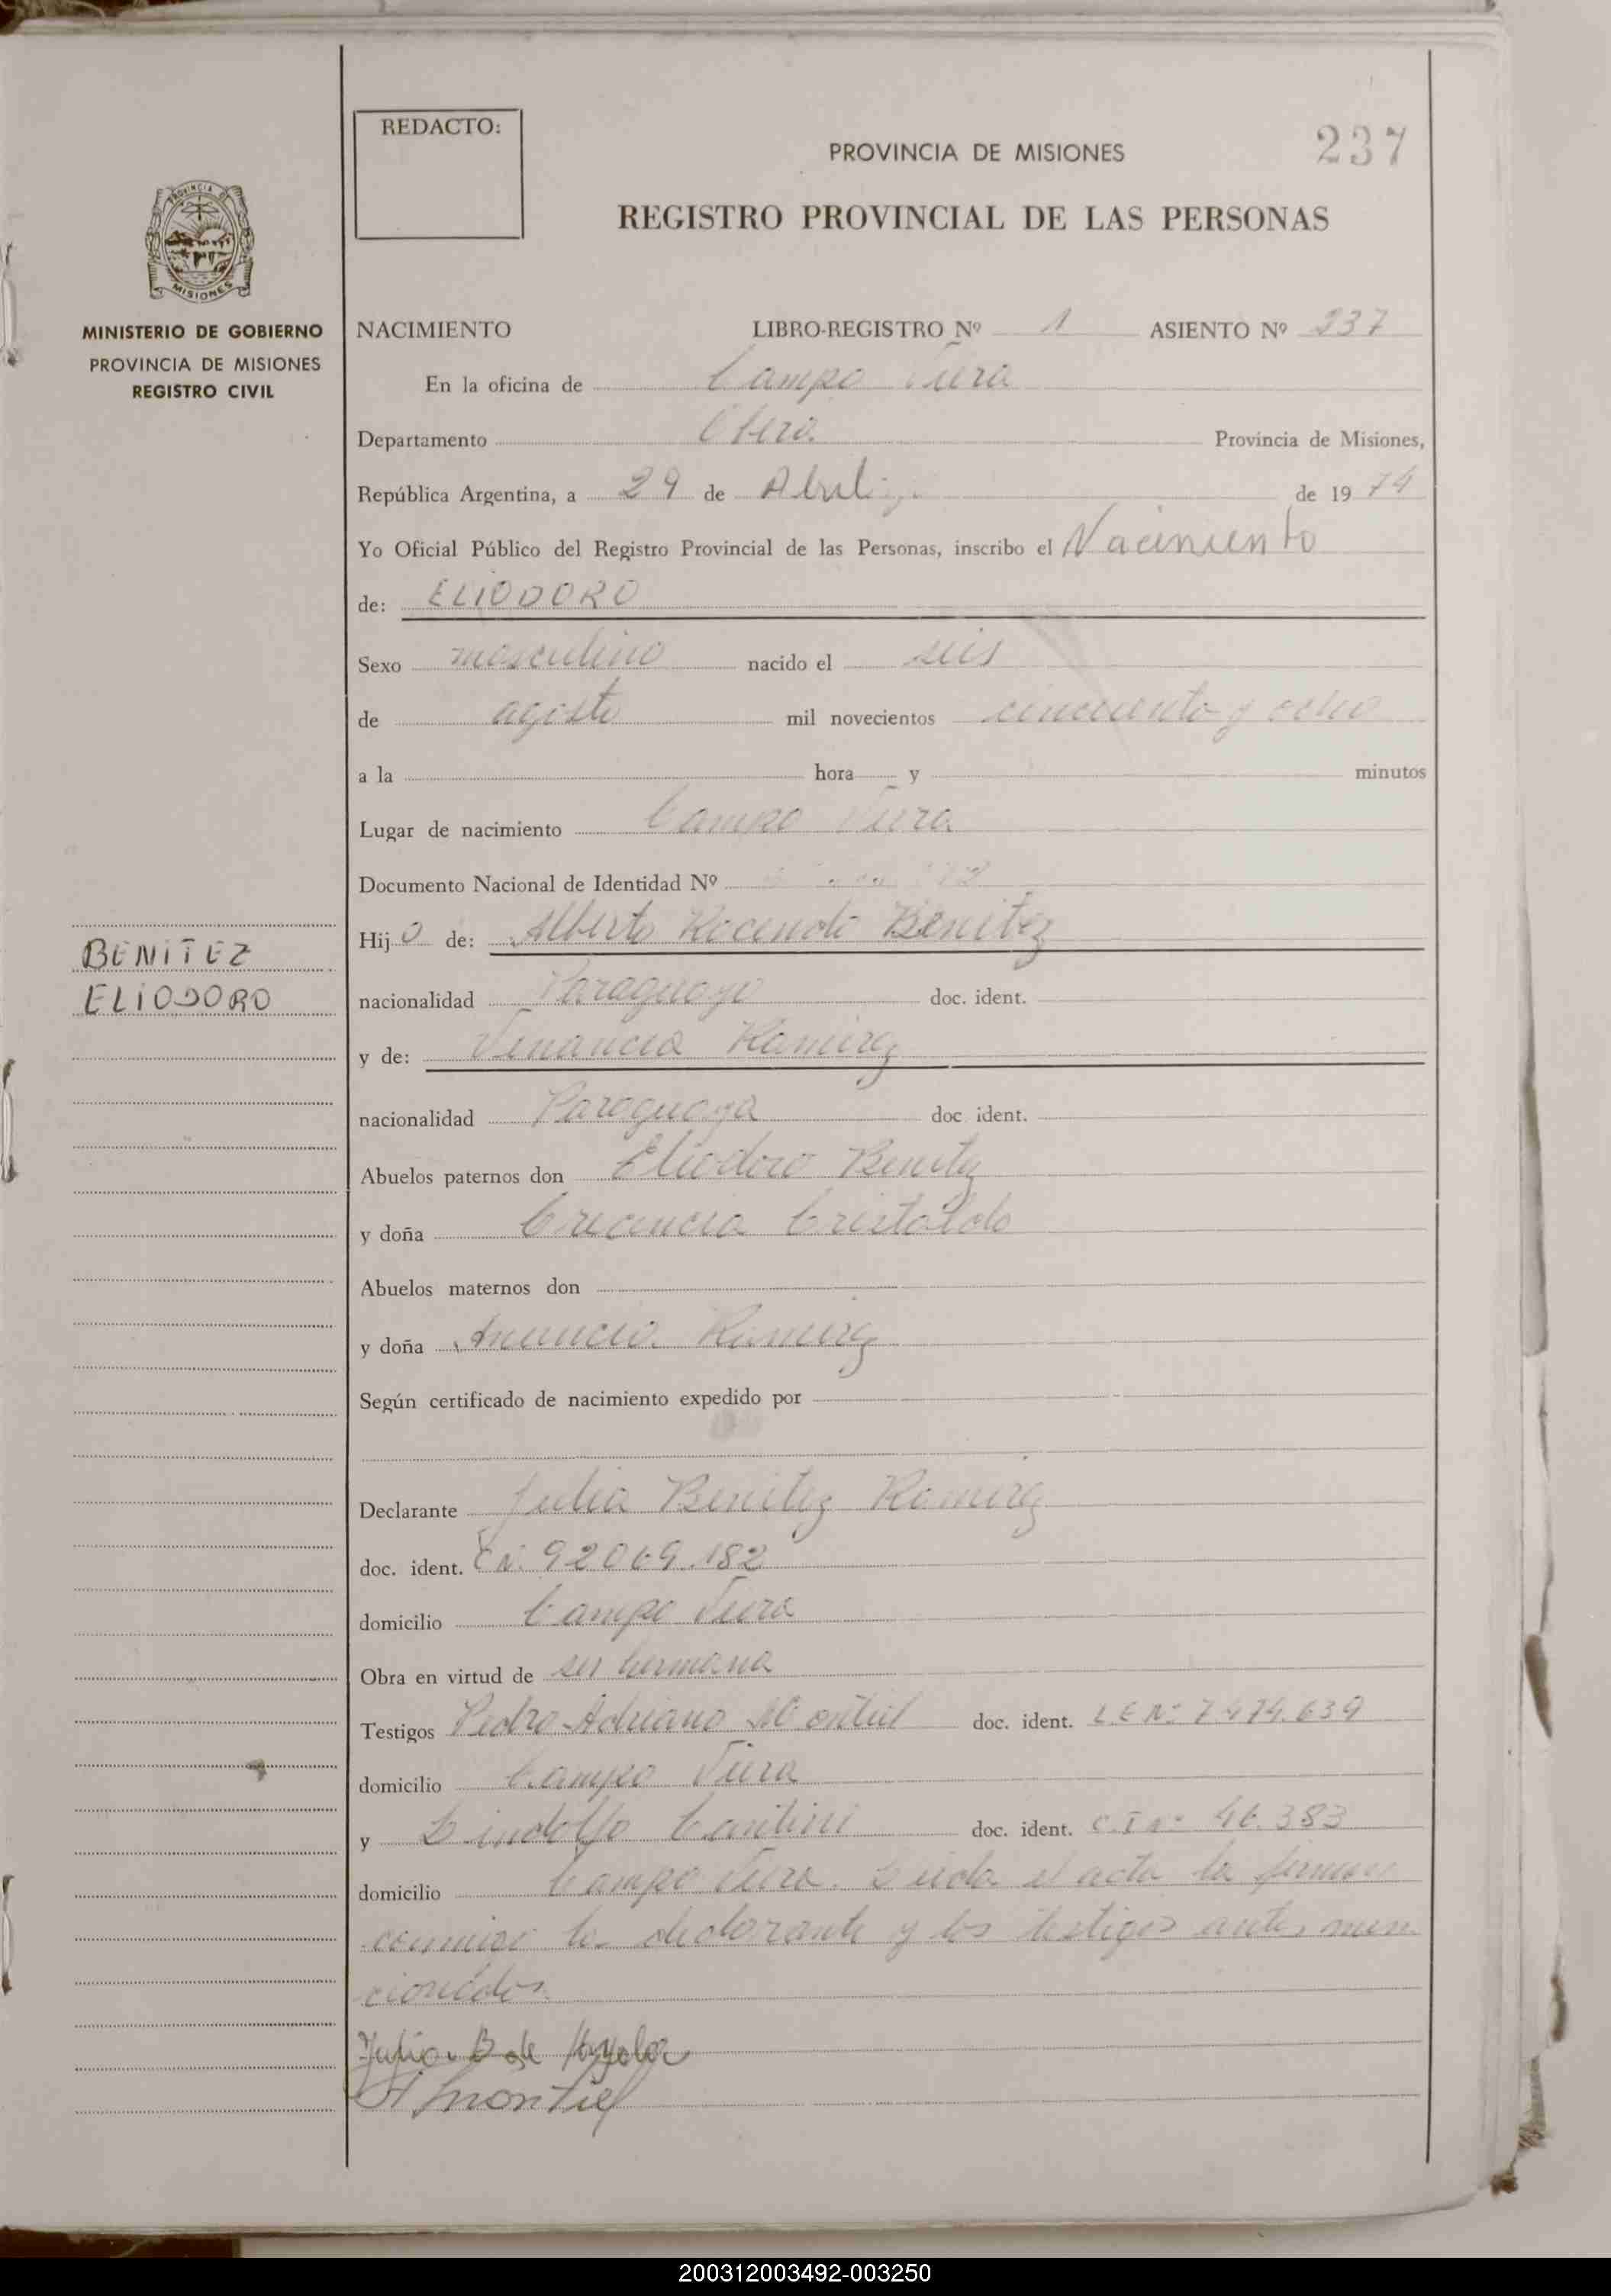 REDACTO:
PROVINCIA DE MISIONES
237
REGISTRO PROVINCIAL DE LAS PERSONAS
PROVINCIA DE
MISIONES
MINISTERIO DE GOBIERNO
PROVINCIA DE MISIONES
REGISTRO CIVIL
NACIMIENTO LIBRO-REGISTRO Nº 1 ASIENTO Nº 237
En la oficina de Campo Viera
Departamento Oberá Provincia de Misiones,
República Argentina, a 29 de Abril de 1974
Yo Oficial Público del Registro Provincial de las Personas, inscribo el Nacimiento
de: ELIODORO
Sexo masculino nacido el seis
de agosto mil novecientos cincuenta y ocho
a la hora y minutos
Lugar de nacimiento Campo Viera
Documento Nacional de Identidad Nº
BENITEZ
ELIODORO
Hijo de: Alberto Rocendo Benitez
nacionalidad Paraguayo doc. ident.
y de: Venancia Ramirez
nacionalidad Paraguaya doc. ident.
Abuelos paternos don Eliodoro Benitez
y doña Crecencia Cristaldo
Abuelos maternos don
y doña Anuncia Ramirez
Según certificado de nacimiento expedido por
Declarante Julia Benitez Ramirez
doc. ident. 92069.182
domicilio Campo Viera
Obra en virtud de ser hermana
Testigos Pedro Adriano Montiel doc. ident. L E Nº 7.474.639
domicilio Campo Viera
y Lindolfo doc. ident. C.I Nº 46.383
domicilio Campo Viera. Leida el acta la firman
conmigo la declarante y los testigos antes men
cionados
Julia B de
A Montiel
200312003492-003250